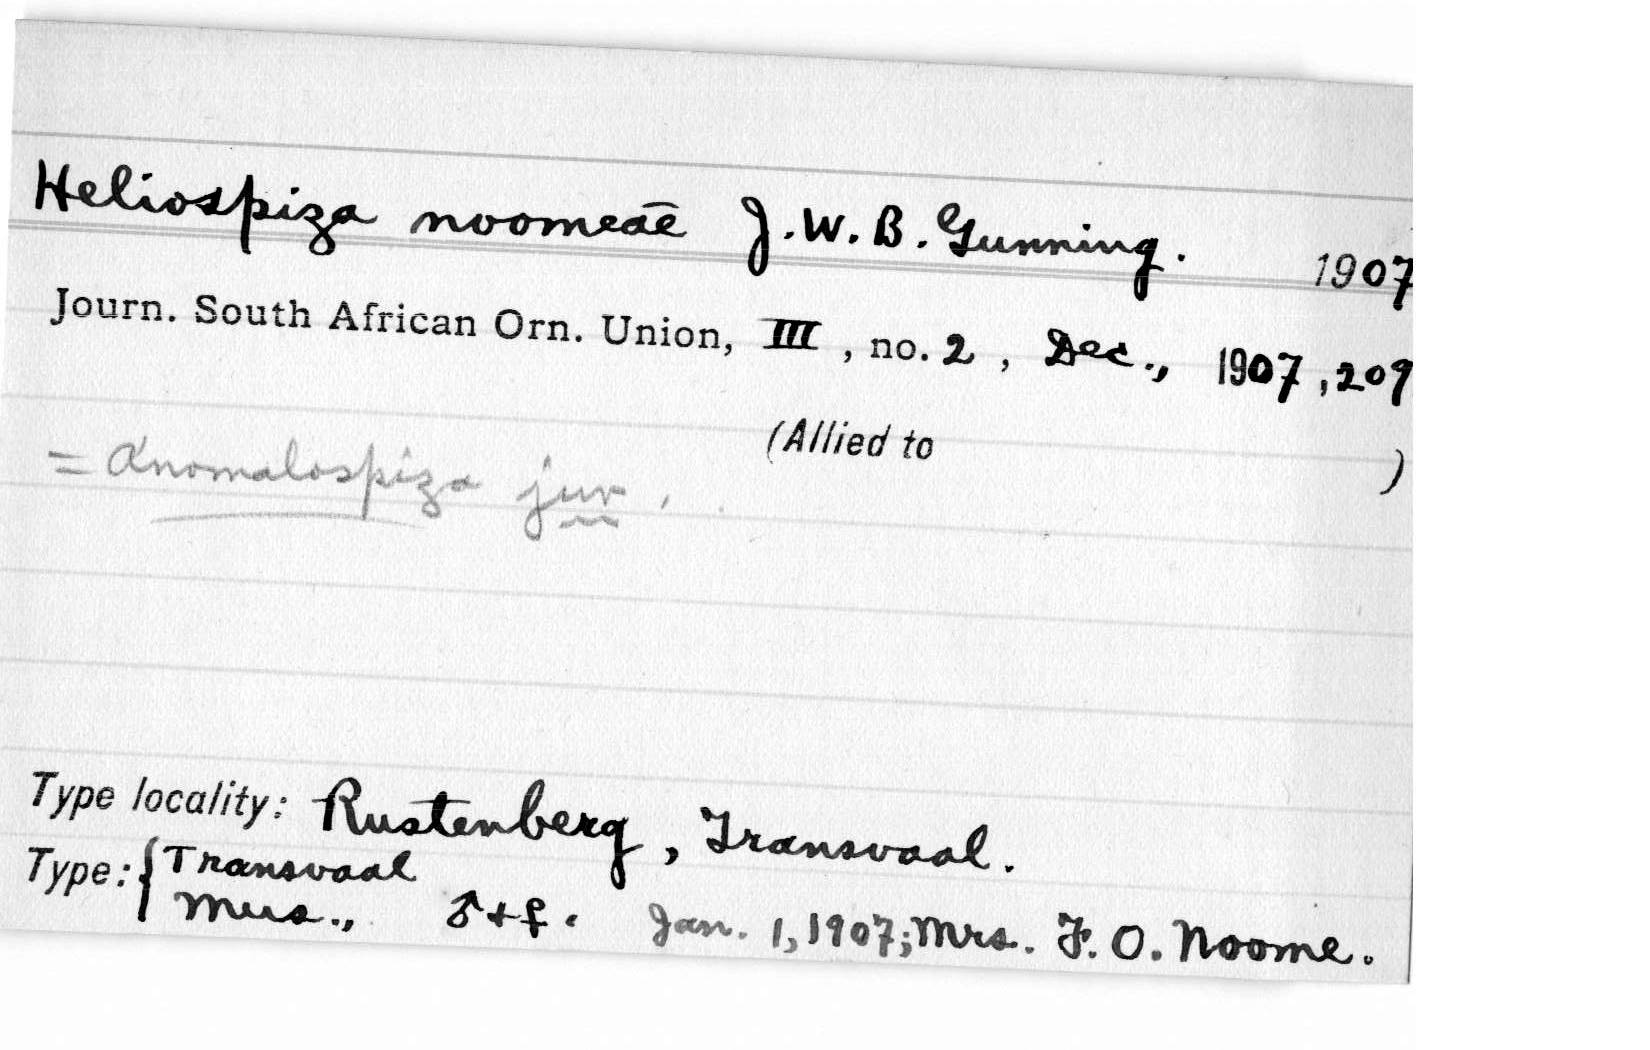 Heliospiza noomeae J.W.B. Gunning. 1907
Journ. South African Orn. Union, III, no. 2, Dec., 1907, 209
(Allied to )
= Anomalospiza juv.
Type locality: Rustenberg, Transvaal.
Type: { Transvaal
Mus., ♂+♀. Jan. 1, 1907; Mrs. F. O. Noome.